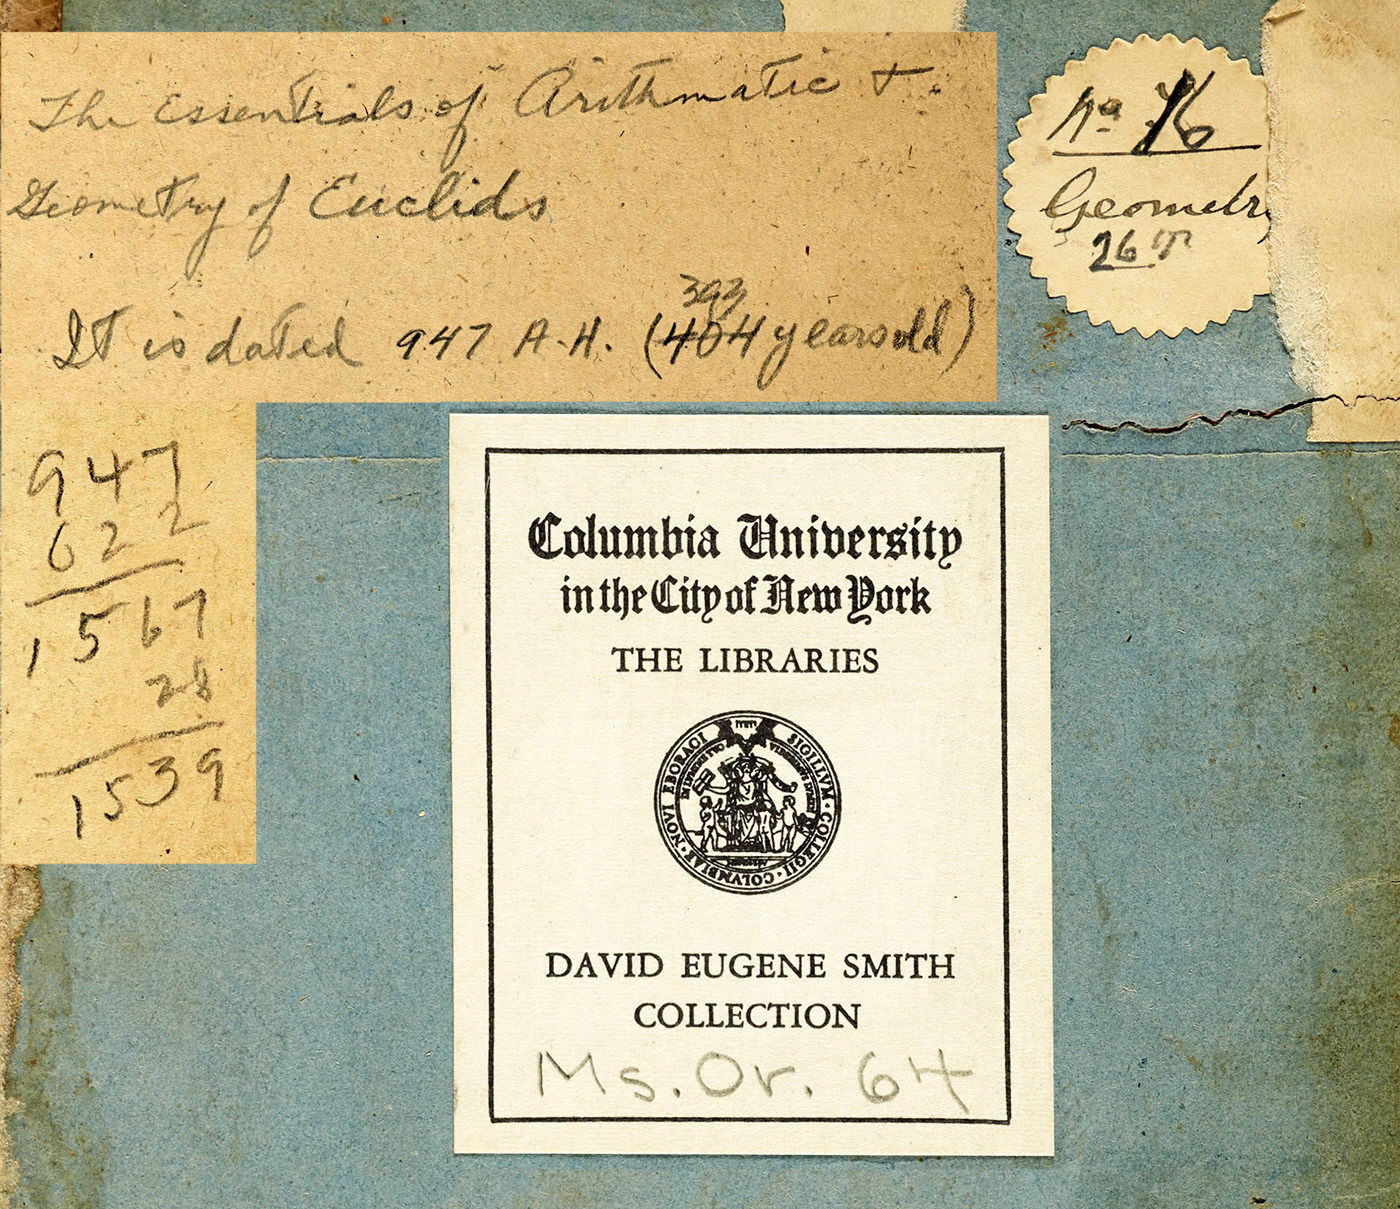 The Essentials of Arithmatic &
Geometry of Euclids
393
It is dated 947 A.H. (404 years old)
No. 76
Geometry
26
947
622
1567
28
1539
Columbia University
in the City of New York
THE LIBRARIES
SIGILLVM · COLLEGII · COLVMBIAE · NOVI EBORACI
DAVID EUGENE SMITH
COLLECTION
Ms. Or. 64